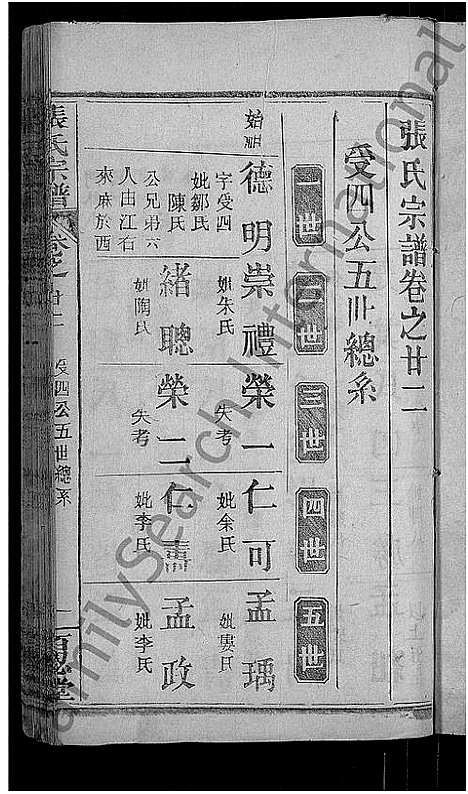 張氏宗譜卷之廿二
受四公五世總系
一世
二世
三世
四世
五世
始祖
德明
崇禮
榮一
仁可
孟瑀
字受四
妣鄒氏
陳氏
公兄弟六
人由江右
來麻於西
妣朱氏
失考
妣余氏
妣婁氏
緒聰
榮二
仁壽
孟政
妣陶氏
失考
妣李氏
妣李氏
張氏宗譜
卷之廿二
受四公五世總系
一
堂
FamilySearch International